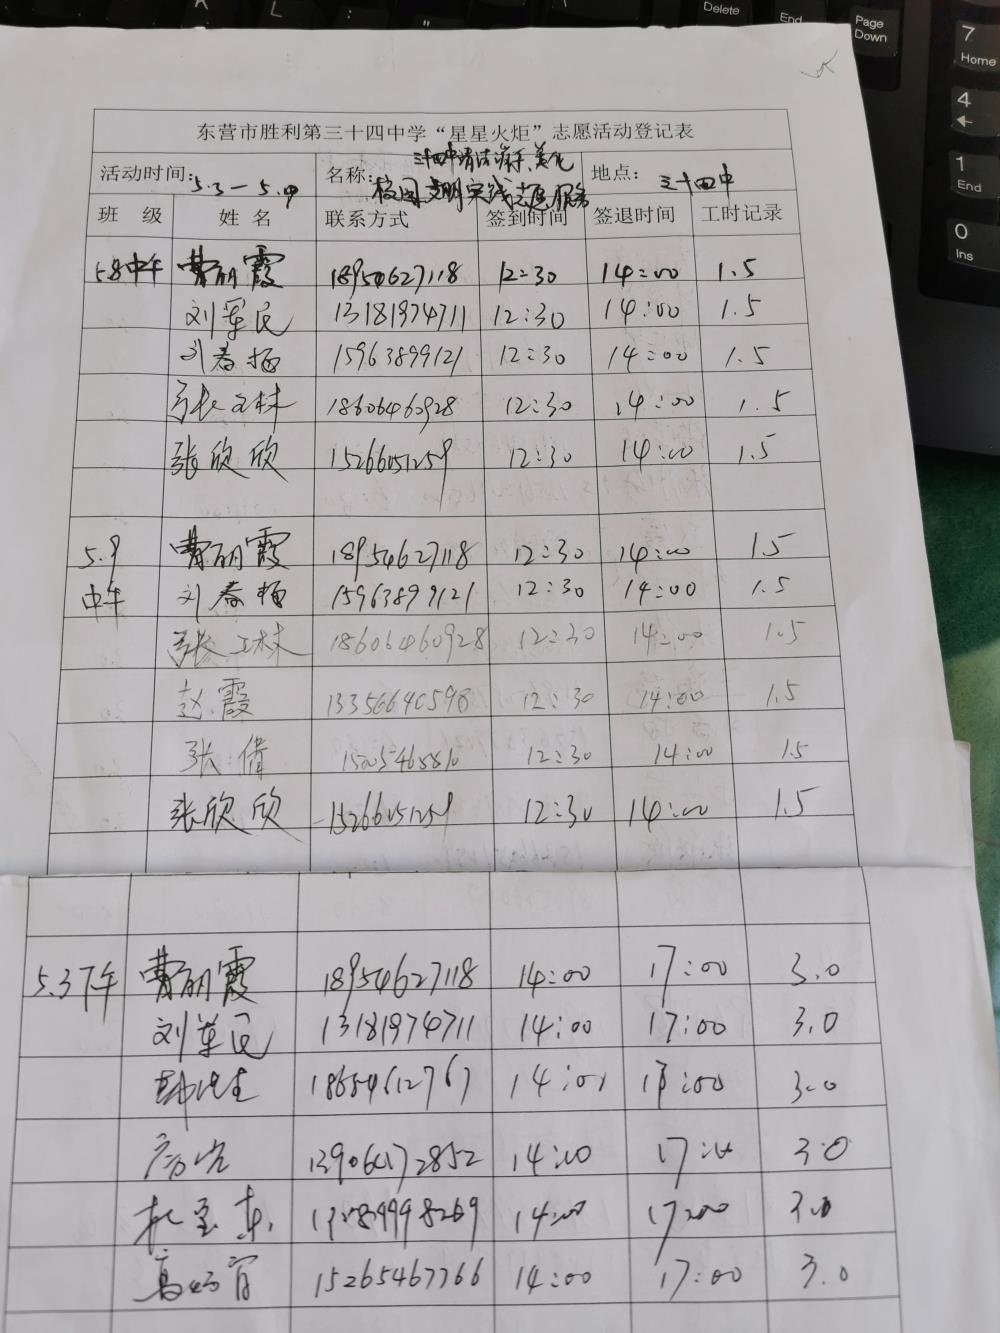 Delete
End
Page Down
7 Home
4
1 End
0 Ins
东营市胜利第三十四中学“星星火炬”志愿活动登记表
活动时间: 5.3—5.9 名称: 三十四中清洁 美化 校园文明实践志愿服务 地点: 三十四中
班 级 姓 名 联系方式 签到时间 签退时间 工时记录
5.8中午 曹丽霞 18954627118 12:30 14:00 1.5
刘军民 13181974711 12:30 14:00 1.5
刘春梅 15963899121 12:30 14:00 1.5
张文林 18606460928 12:30 14:00 1.5
张欣欣 15266051259 12:30 14:00 1.5
5.9 曹丽霞 18954627118 12:30 14:00 1.5
中午 刘春梅 15963899121 12:30 14:00 1.5
张 林 18606460928 12:30 14:00 1.5
赵霞 13356640598 12:30 14:00 1.5
张倩 12:30 14:00 1.5
张欣欣 15266051259 12:30 14:00 1.5
5.3下午 曹丽霞 18954627118 14:00 17:00 3.0
刘军民 13181974711 14:00 17:00 3.0
18654612767 14:00 17:00 3.0
14:00 17:00 3.0
14:00 17:00 3.0
15265467766 14:00 17:00 3.0